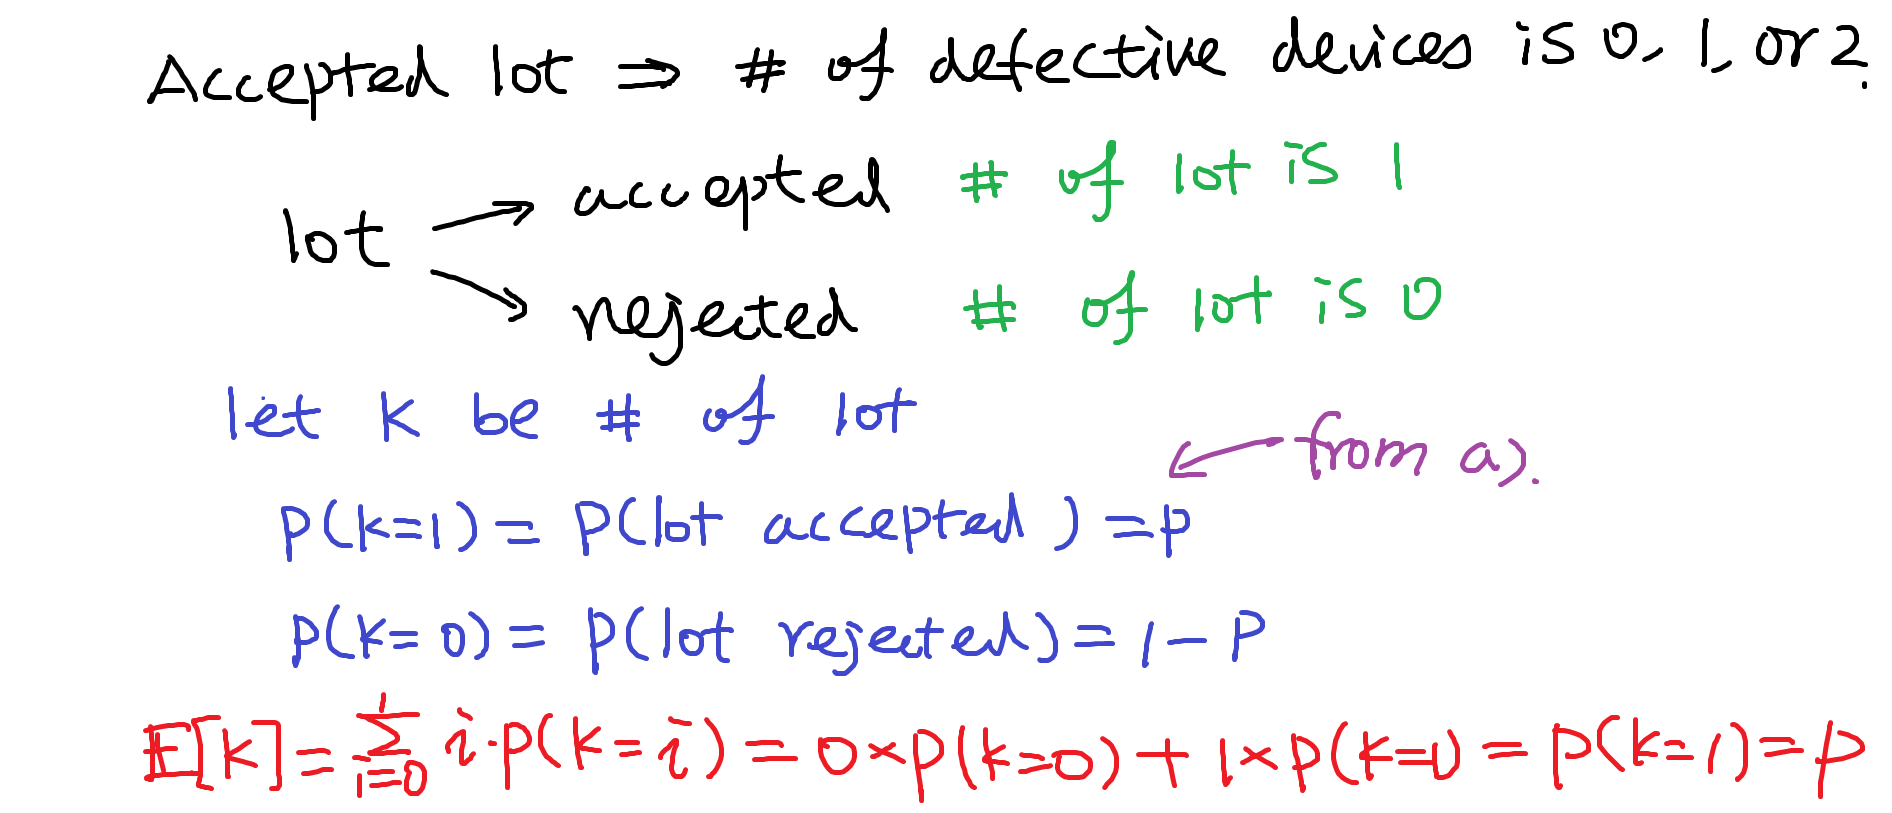 Accepted lot ⇒ # of defective devices is 0, 1, or 2.
accepted # of lot is 1
lot
rejected # of lot is 0
let K be # of lot
from a).
P(K=1) = P(lot accepted) = P
P(K=0) = P(lot rejected) = 1 - P
E[K] = ∑_{i=0}^{1} i·P(K=i) = 0×P(K=0) + 1×P(K=1) = P(K=1) = P